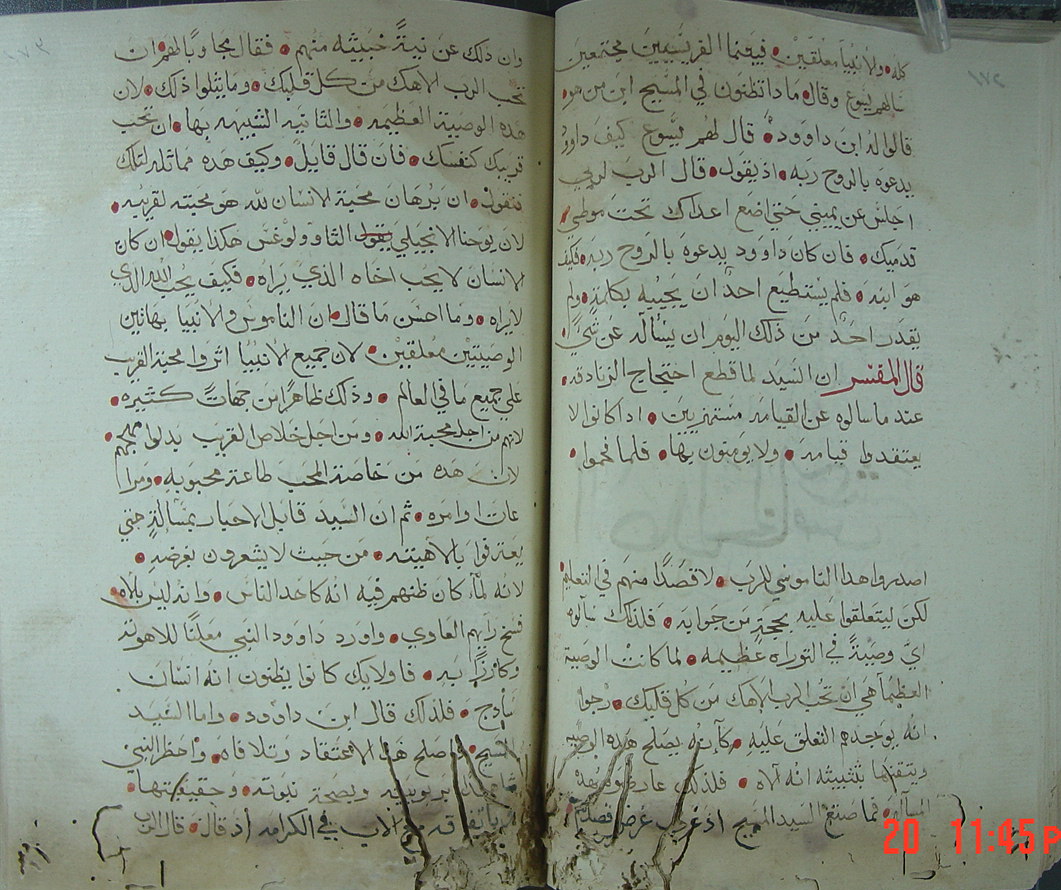 كله • ولا نبيا معلقين • فيمنما الفريسيين مجتمعين
سالهم ليسوع وقال • مادا تظنون في المسيح ابن من هو •
قالوا له ابن داوود • قال لهم ليسوع كيف داوود
يدعوه بالروح ربه • اذ يقول • قال الرب لربي
اجلس عن يميني حتي اضع اعداك تحت موطي
قدميك • فان كان داوود يدعوه بالروح ربه • فكيف
هو ابنه • فلم يستطيع احدٌ ان يجيبه بكلمةٍ • ولم
يقدر احدٌ من ذلك اليوم ان يساله عن شي
قال المفسر ان السيد لما قطع احتجاج الزنادقه •
عند ما سالوه عن القيامه مستهزيين • اد كانوا لا
يعتقدوا قيامه • ولا يومنون بها • فلما فحموا •
اصدروا هدا الناموسي للرب • لا قصدًا منهم في التعليم
لكن ليتعلقوا عليه بحجةٍ من جوابه • فلذلك سالوه
ايّ وصيةً في التوراه عظيمه • لما كانت الوصية
العظيما هي ان تحب الرب الاهك من كل قلبك • رجوا
انه يوجدهم التعلق عليه • كانه يصلح هده الوصيه
وينتقضها بتثبيته انه الاه • فلذلك
المساله • فما صنع السيد المسيح اذ عرف غرض قصدهم
وان ذلك عن نيةً خبيثه منهم • فقال مجاوبًا لهم • ان
تحب الرب الاهك من كل قلبك • وما يتلوا ذلك • لان
هده الوصية العظيمه • والثانيه الشبيهه بها • ان تحب
قريبك كنفسك • فان قال قايل • وكيف هده مماثله لتلك
فنقول • ان برهان محبة الانسان لله هو محبته لقريبه •
لان يوحنا الانجيلي يقول التاوولوغس هكذا يقول • ان كان
الانسان لا يحب اخاه الذي يراه • فكيف يحب الله الدي
لا يراه • وما احسن ما قال • ان الناموس والانبيا بهاتين
الوصيتين معلقين • لان جميع الانبيا اثروا محبة القريب
علي جميع ما في العالم • وذلك ظاهرًا من جهاتً كثيره •
لانهم من اجل محبة الله • ومن اجل خلاص القريب بدلوا مهجهم
لان هده من خاصة المحب طاعة محبوبه • ومرا
عات اوامره • ثم ان السيد قابل الاحبار بمسالةٍ حتي
يعترفوا بالاهيته • من حيث لا يشعرون بغرضه •
لانه لما كان ظنهم فيه انه كاحد الناس • وانه ليس بالاه •
فسخ رايهم الغاوي • واورد داوود النبي معلنًا للاهوته
وكارزًا به • فاولايك كانوا يظنون انه انسان
سادج • فلذلك قال ابن داوود • واما السيد
المسيح • فاصلح هذا الاعتقاد وتلافاه • واحضر النبي
شاهدًا بربوبيته وبصحة نبوته • وحقيقتها •
مع الاب في الكرامه اد قال • قال الرب
20 11:45 P